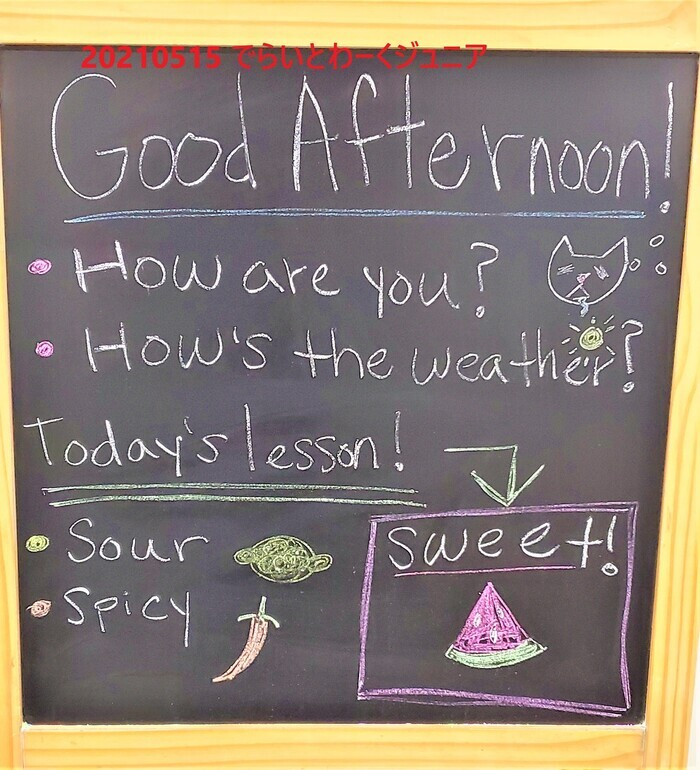 20210515 でらいとわーくジュニア
Good Afternoon!
How are you?
How's the weather?
Today's lesson!
Sour
Spicy
sweet!